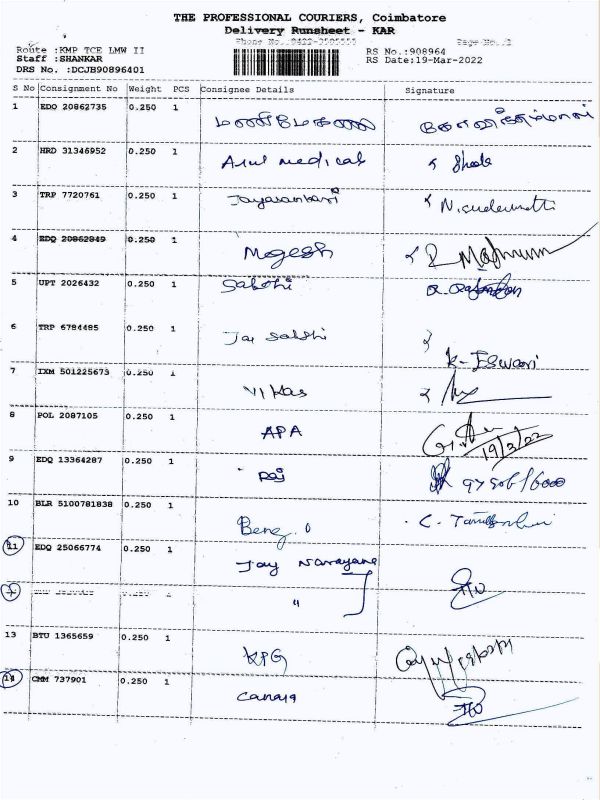 THE PROFESSIONAL COURIERS, Coimbatore
Delivery Runsheet - KAR
Route :KMP TCE LMW II
RS No.:908964
Staff :SHANKAR
RS Date:19-Mar-2022
DRS No. :DCJB90896401
S No Consignment No Weight PCS Consignee Details Signature
1 EDO 20862735 0.250 1
2 HRD 31346952 0.250 1 Arul medical
3 TRP 7720761 0.250 1
4 EDQ 20862849 0.250 1 Mogesh
5 UPT 2026432 0.250 1 Sakthi
6 TRP 6784485 0.250 1 Jai Sakthi
K-Eswari
7 IXM 501225673 0.250 1 Vikas
8 POL 2087105 0.250 1 APA
19/3/22
9 EDQ 13364287 0.250 1 Raj
10 BLR 5100781838 0.250 1
11 EDQ 25066774 0.250 1 Jay Narayana
"
13 BTU 1365659 0.250 1 KPG
14 CMM 737901 0.250 1 Canara